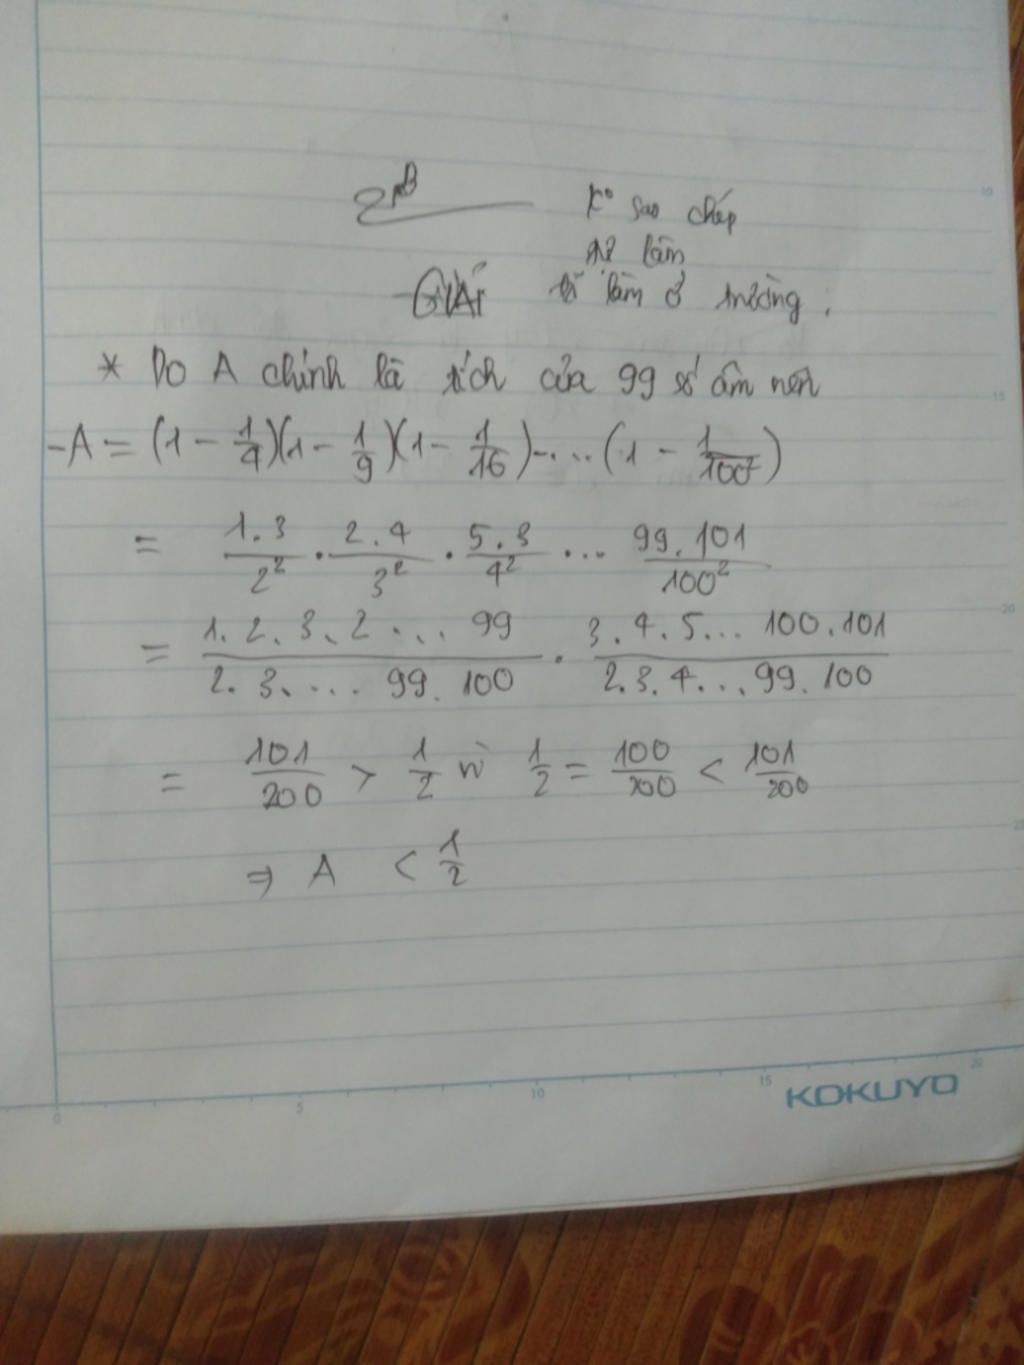 K° sao chép
tự làm
GIẢI đã làm ở trường.
* Do A chính là tích của 99 số âm nên
-A = (1 - 1/4)(1 - 1/9)(1 - 1/16)-...(1 - 1/100²)
= 1.3/2² . 2.4/3² . 5.3/4² . ... 99.101/100²
= 1.2.3.2...99/2.3....99.100 . 3.4.5...100.101/2.3.4...99.100
= 101/200 > 1/2 vì 1/2 = 100/200 < 101/200
⇒ A < 1/2
0 5 10 15 20
KOKUYO